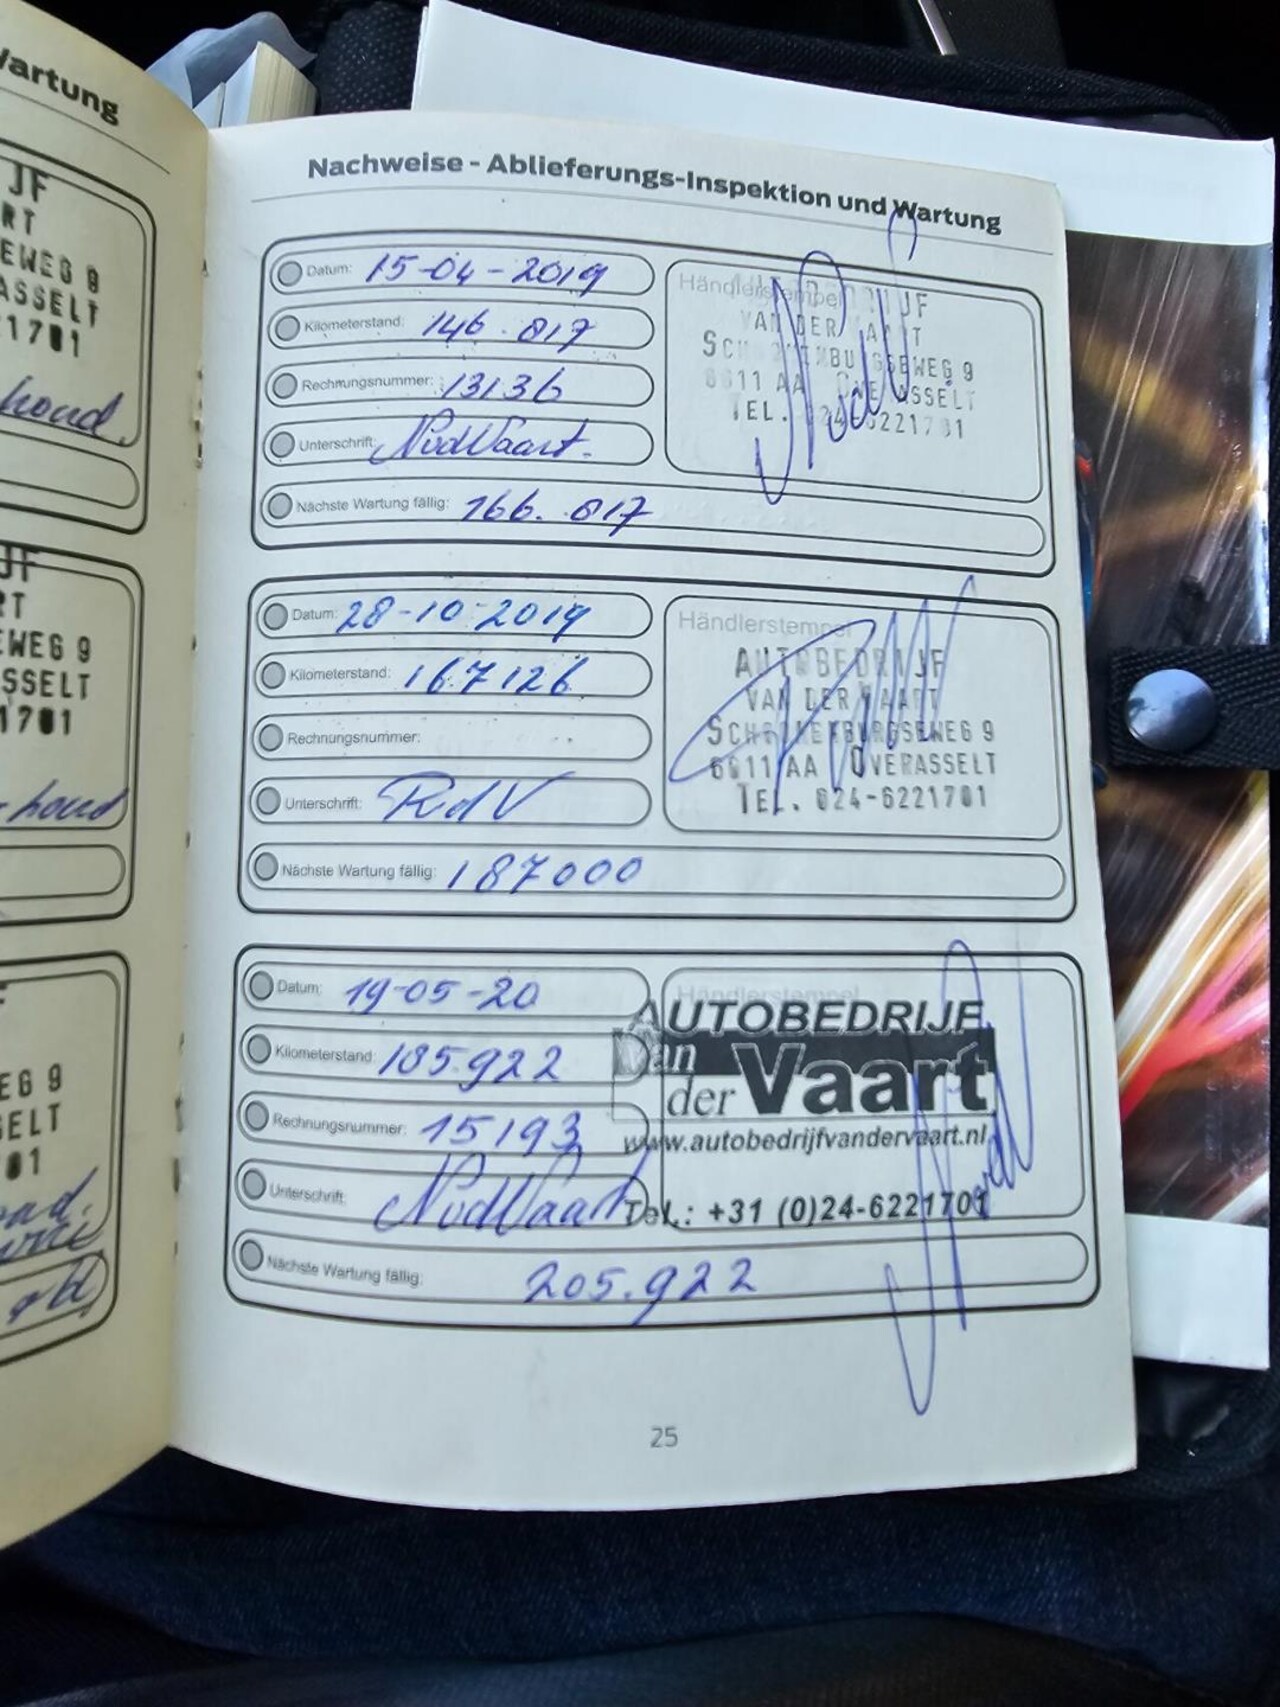 Wartung
JF
RT
EWEG 9
ASSELT
1701
houd.
JF
RT
EWEG 9
SSELT
1701
houd
EG 9
ELT
01
Nachweise - Ablieferungs-Inspektion und Wartung
Datum: 15-04-2019
Kilometerstand: 146.817
Rechnungsnummer: 13136
Unterschrift: NvdVaart.
Nächste Wartung fällig: 166.817
Händlerstempel
VAN DER VAART
WEG 9
6611 AA OVERASSELT
TEL. 024-6221701
Datum: 28-10-2019
Kilometerstand: 167126
Rechnungsnummer:
Unterschrift: RdV
Nächste Wartung fällig: 187000
Händlerstempel
AUTOBEDRIJF
VAN DER VAART
SCHOONENBURGSEWEG 9
6611 AA OVERASSELT
TEL. 024-6221701
Datum: 19-05-20
Kilometerstand: 185.922
Rechnungsnummer: 15193
Unterschrift: NvdVaart
Nächste Wartung fällig: 205.922
Händlerstempel
AUTOBEDRIJF
Van
der Vaart
www.autobedrijfvandervaart.nl
Tel.: +31 (0)24-6221701
25